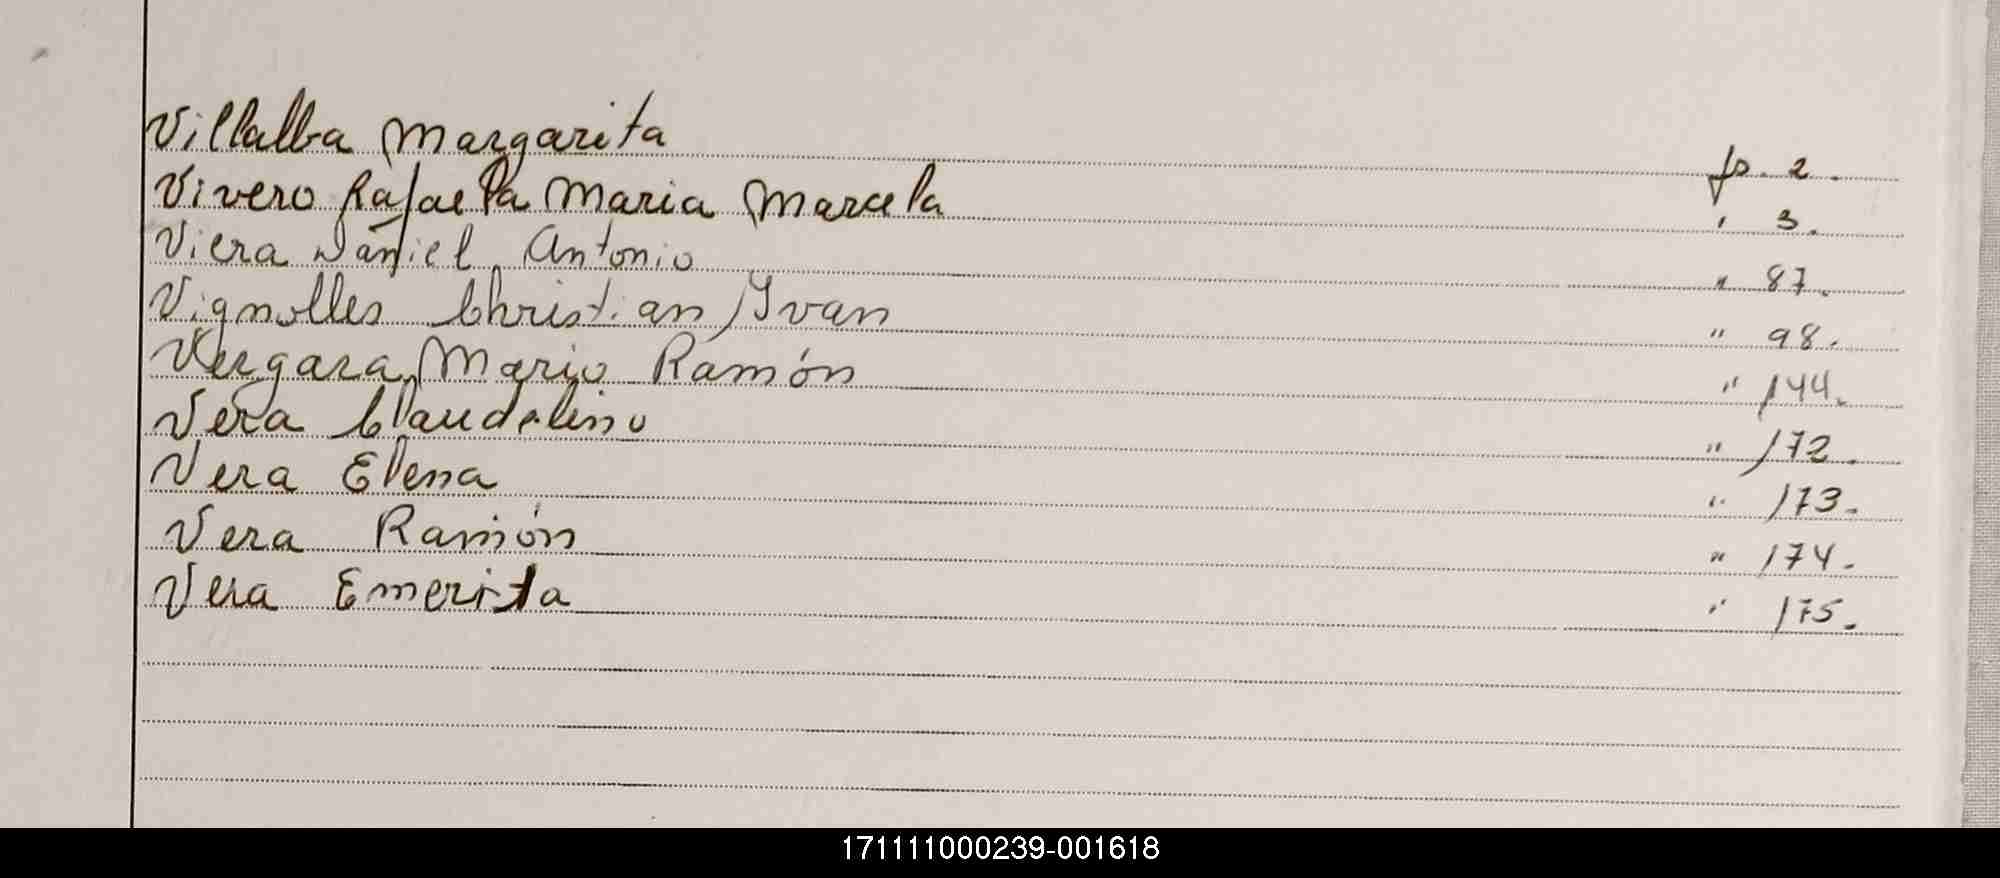 Villalba Margarita fs. 2.
Vivero Rafaela Maria Marcela " 3.
Viera Daniel Antonio " 87.
Vignolles Christian Yvan " 98.
Vergara Mario Ramón " 144.
Vera Claudelino " 172.
Vera Elena " 173.
Vera Ramón " 174.
Vera Emerita " 175.
171111000239-001618